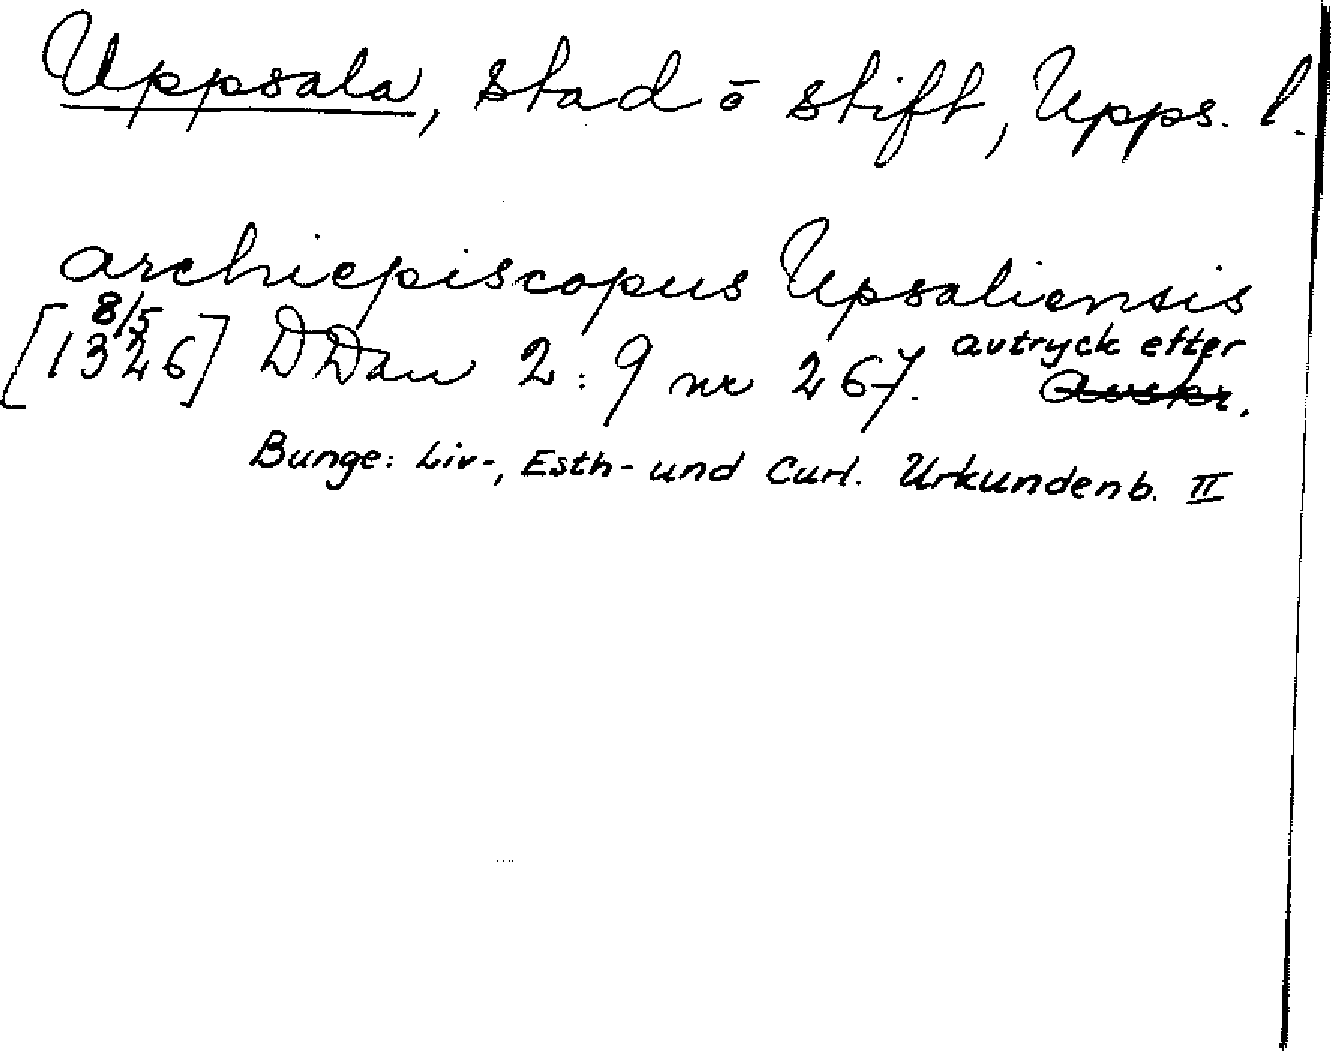 Uppsala, stad ō stift, Upps. l.
archiepiscopus Upsaliensis
8/5
[1326] DDan 2:9 nr 267. avtryck efter
Avskr.
Bunge: Liv-, Esth- und Curl. Urkundenb. II